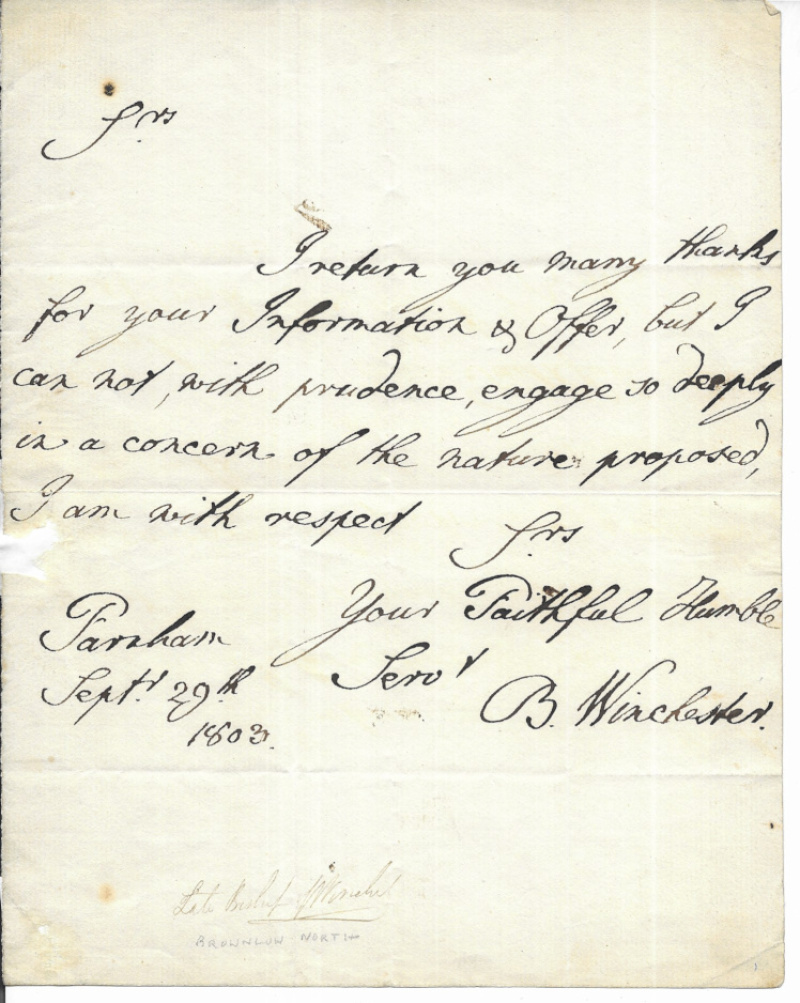 Srs
I return you many thanks
for your Information & Offer, but I
can not, with prudence, engage so deeply
in a concern of the nature proposed,
I am with respect
Srs
Your Faithful Humble
Servt
B. Winchester.
Farnham
Septr 29th
1803.
Late Bishop of Winchester
BROWNLOW NORTH